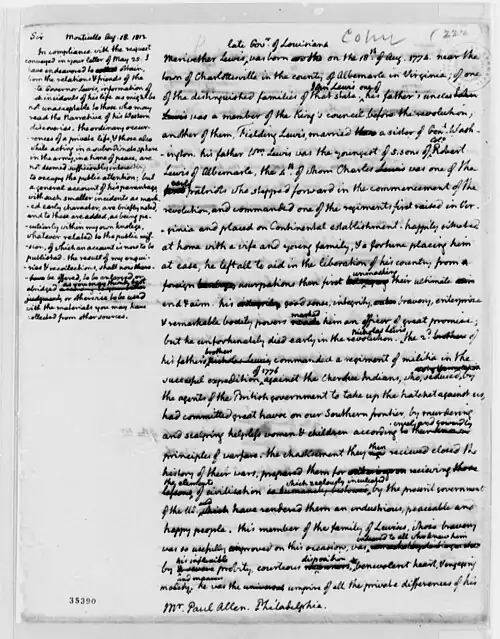 Sir Monticello Aug. 18. 1813
In compliance with the request
conveyed in your letter of May 25. I
have endeavored to obtain,
from the relations & friends of the
late Governor Lewis, information of
such incidents of his life as might be
not unacceptable to those who may
read the Narrative of his Western
discoveries. the ordinary occur-
rences of a private life, & those also
while acting in a subordinate sphere
in the army, in a time of peace, are
not deemed sufficiently interesting
to occupy the public attention; but
a general account of his parentage,
with such smaller incidents as mark-
ed early character, are briefly noted
and to these are added, as being pe-
culiarly within my own knolege,
whatever related to the public mis-
sion, of which an account is now to be
published. the result of my enqui-
ries & recollections, shall now
be offered, to be enlarged or
abridged as you may think best
or otherwise to be used
with the materials you may have
collected from other sources.
Colur
(222
late Govr. of Louisiana
Meriwether Lewis, was born on the 18th. of Aug. 1774. near the
town of Charlottesville in the county of Albemarle in Virginia; of one
of the distinguished families of that state. John Lewis one of his father's uncles
was a member of the king's council before the revolution,
another of them, Fielding Lewis, married a sister of Genl. Wash-
-ington. his father Wm. Lewis was the youngest of 5. sons of Colo. Robert
Lewis of Albemarle, the 4th. of whom Charles was one of the
early patriots who stepped forward in the commencement of the
revolution, and commanded one of the regiments first raised in Vir-
-ginia and placed on Continental establishment. happily situated
at home with a wife and young family, & a fortune placing him
at ease, he left all to aid in the liberation of his country from
foreign usurpations then first unmasking their ultimate
end & aim. his good sense, integrity, bravery, enterprise
& remarkable bodily powers marked him an officer of great promise;
but he unfortunately died early in the revolution. Nicholas Lewis, the 2d. of
his father's brothers commanded a regiment of militia in the
succesful expedition of 1776 against the Cherokee Indians, who, seduced by
the agents of the British government to take up the hatchet against us,
had committed great havoc on our Southern frontier, by murdering
and scalping helpless women & children according to their cruel and cowardly
principles of warfare. the chastisement they then recieved closed the
history of their wars, prepared them for recieving
the elements of civilisation which zealously inculcated by the present government
of the US. have rendered them an industrious, peaceable and
happy people. this member of the family of Lewises, whose bravery
was so usefully proved on this occasion, was endeared to all who knew him
by his inflexible probity, courteous disposition, benevolent heart, & engaging
modesty, and manners. he was the umpire of all the private differences of his
Mr. Paul Allen. Philadelphia.
35390